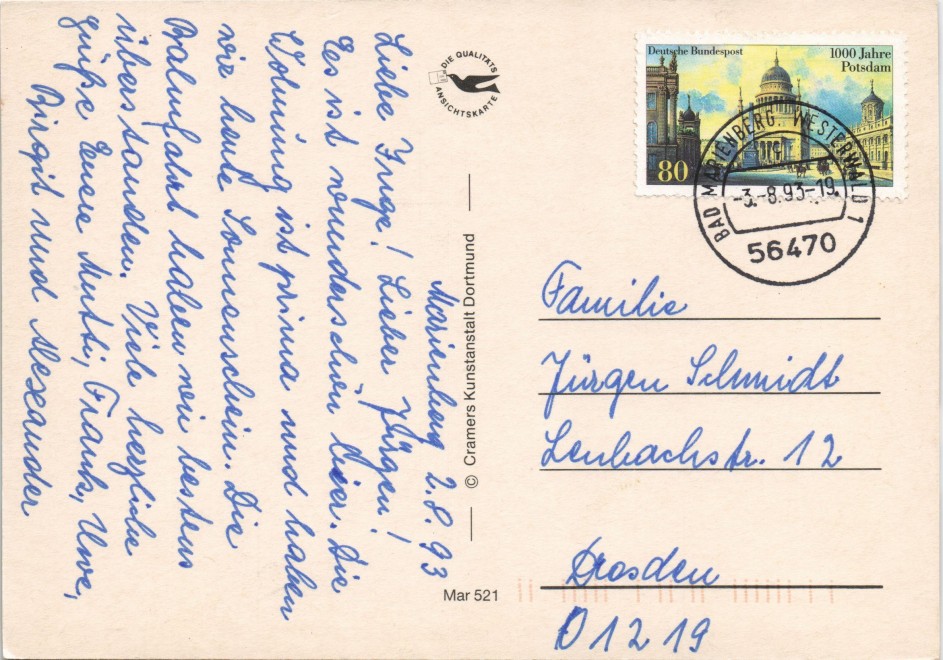 Marienberg 2.8.93
Liebe Inge! Lieber Jürgen!
Es ist wunderschön hier. Die
Wohnung ist prima und haben
wir heute Sonnenschein. Die
Bahnfahrt haben wir bestens
überstanden. Viele herzliche
Grüße Euere Mutti, Frank, Uwe,
Birgit und Alexander
DIE QUALITÄTS
ANSICHTSKARTE
© Cramers Kunstanstalt Dortmund
Mar 521
Deutsche Bundespost
1000 Jahre
Potsdam
80
BAD MARIENBERG, WESTERWALD 1
-3.-8.93-19
56470
Familie
Jürgen Schmidt
Lenbachstr. 12
Dresden
01219